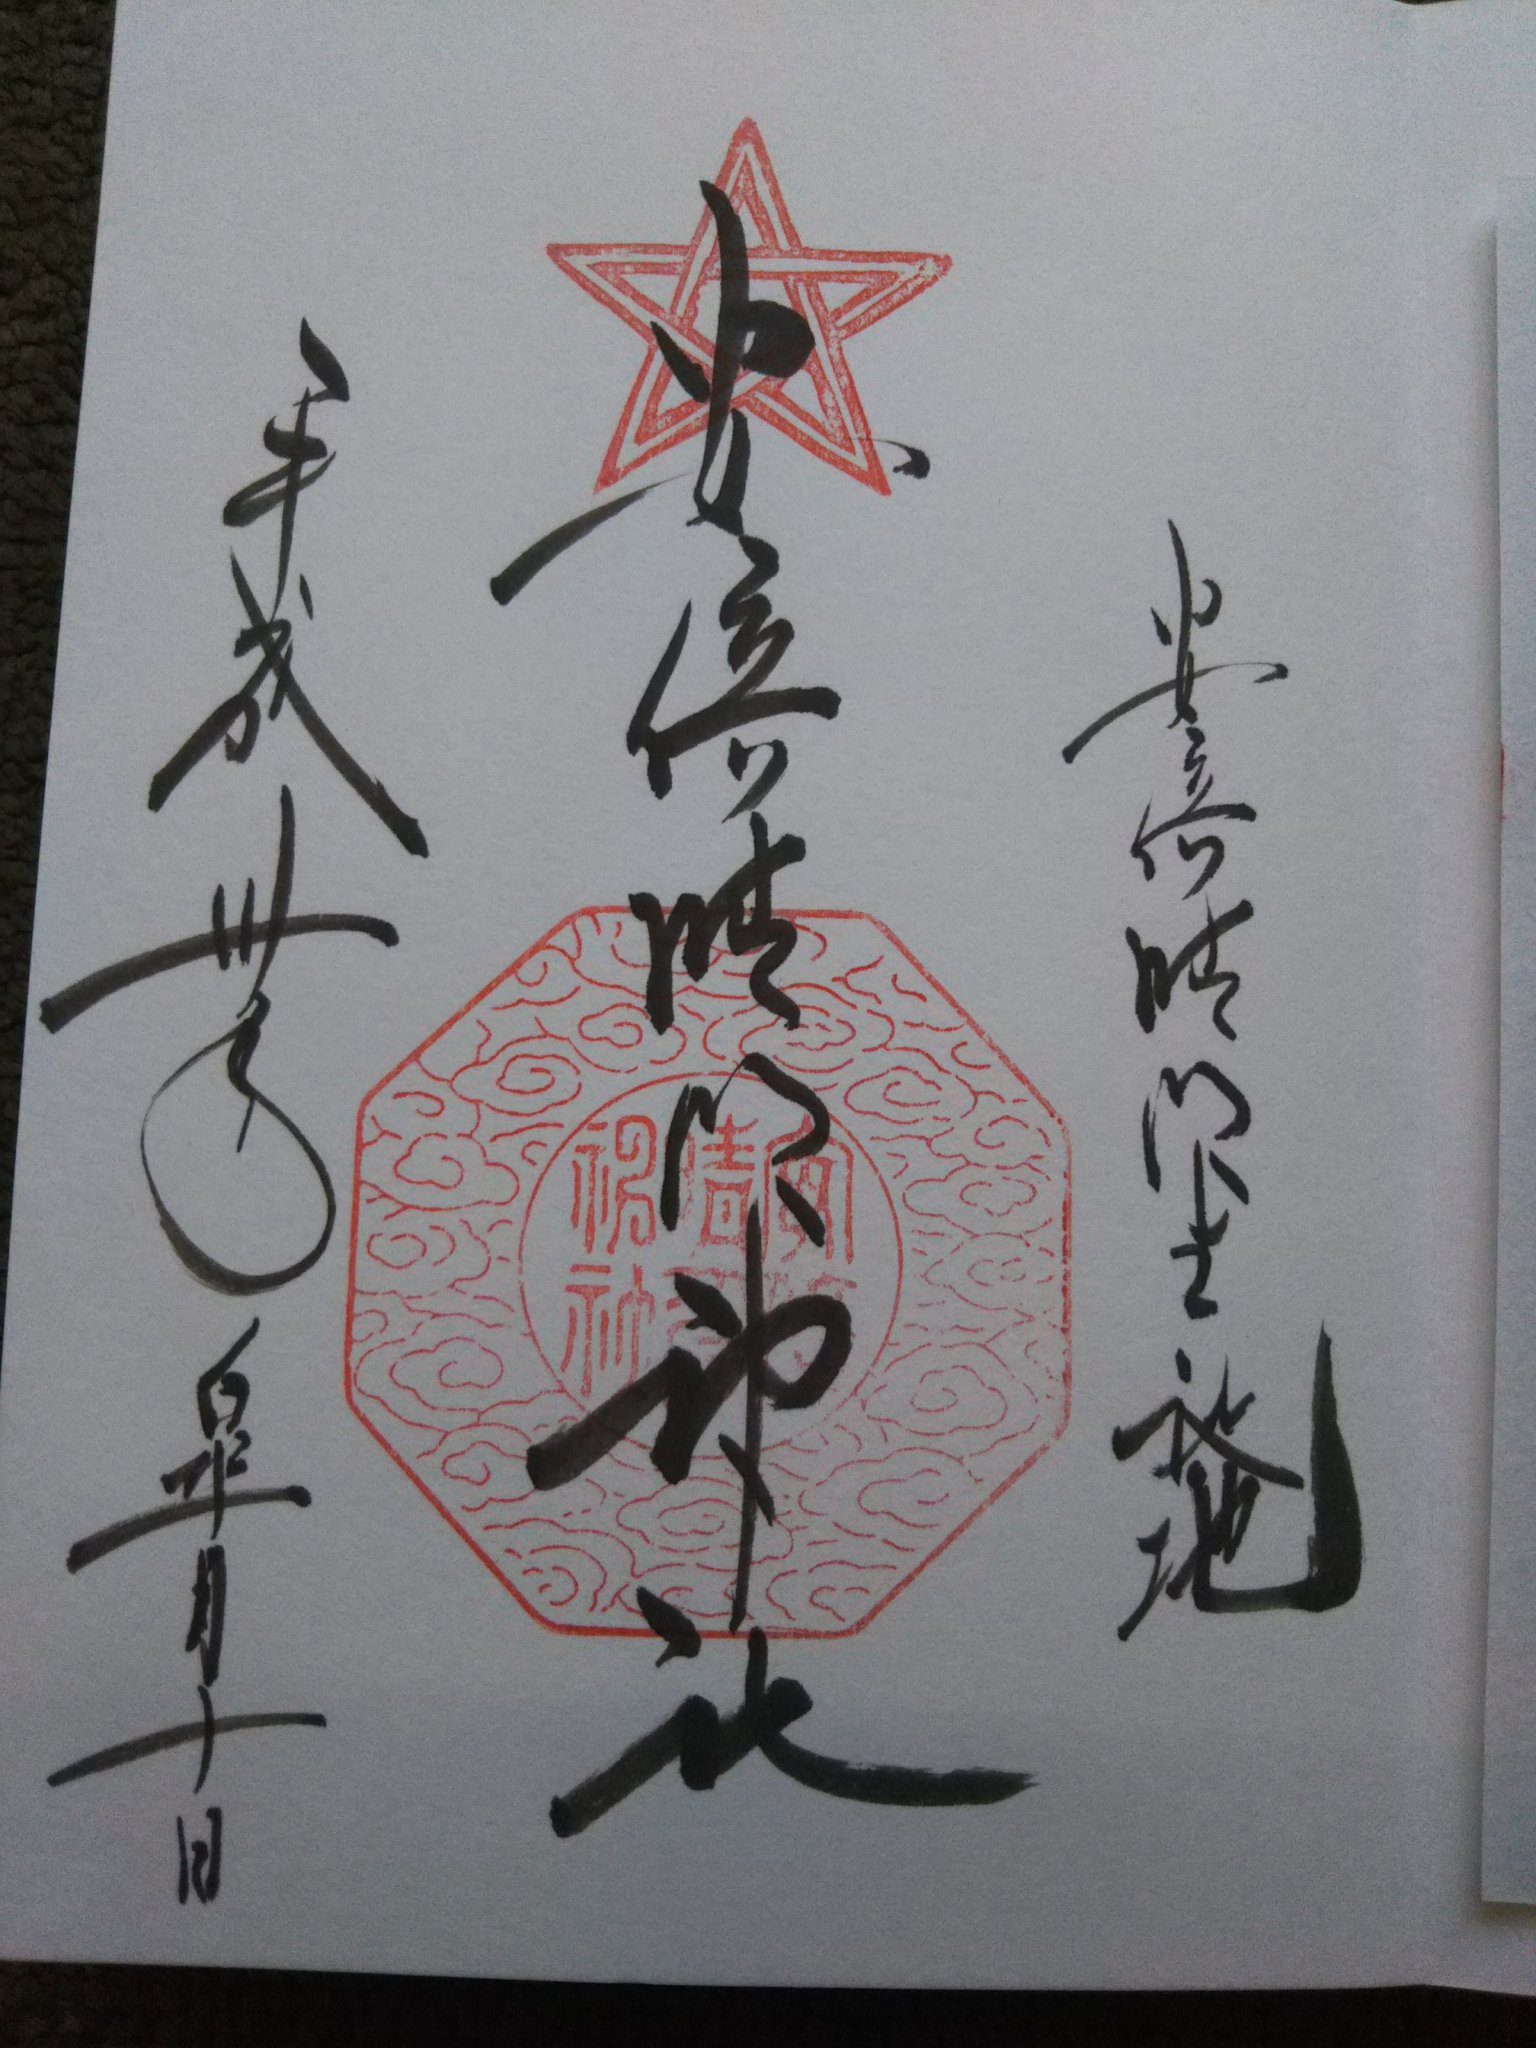 安倍晴明生誕地
安倍晴明神社
平成卅年皐月十日
安倍晴明神社